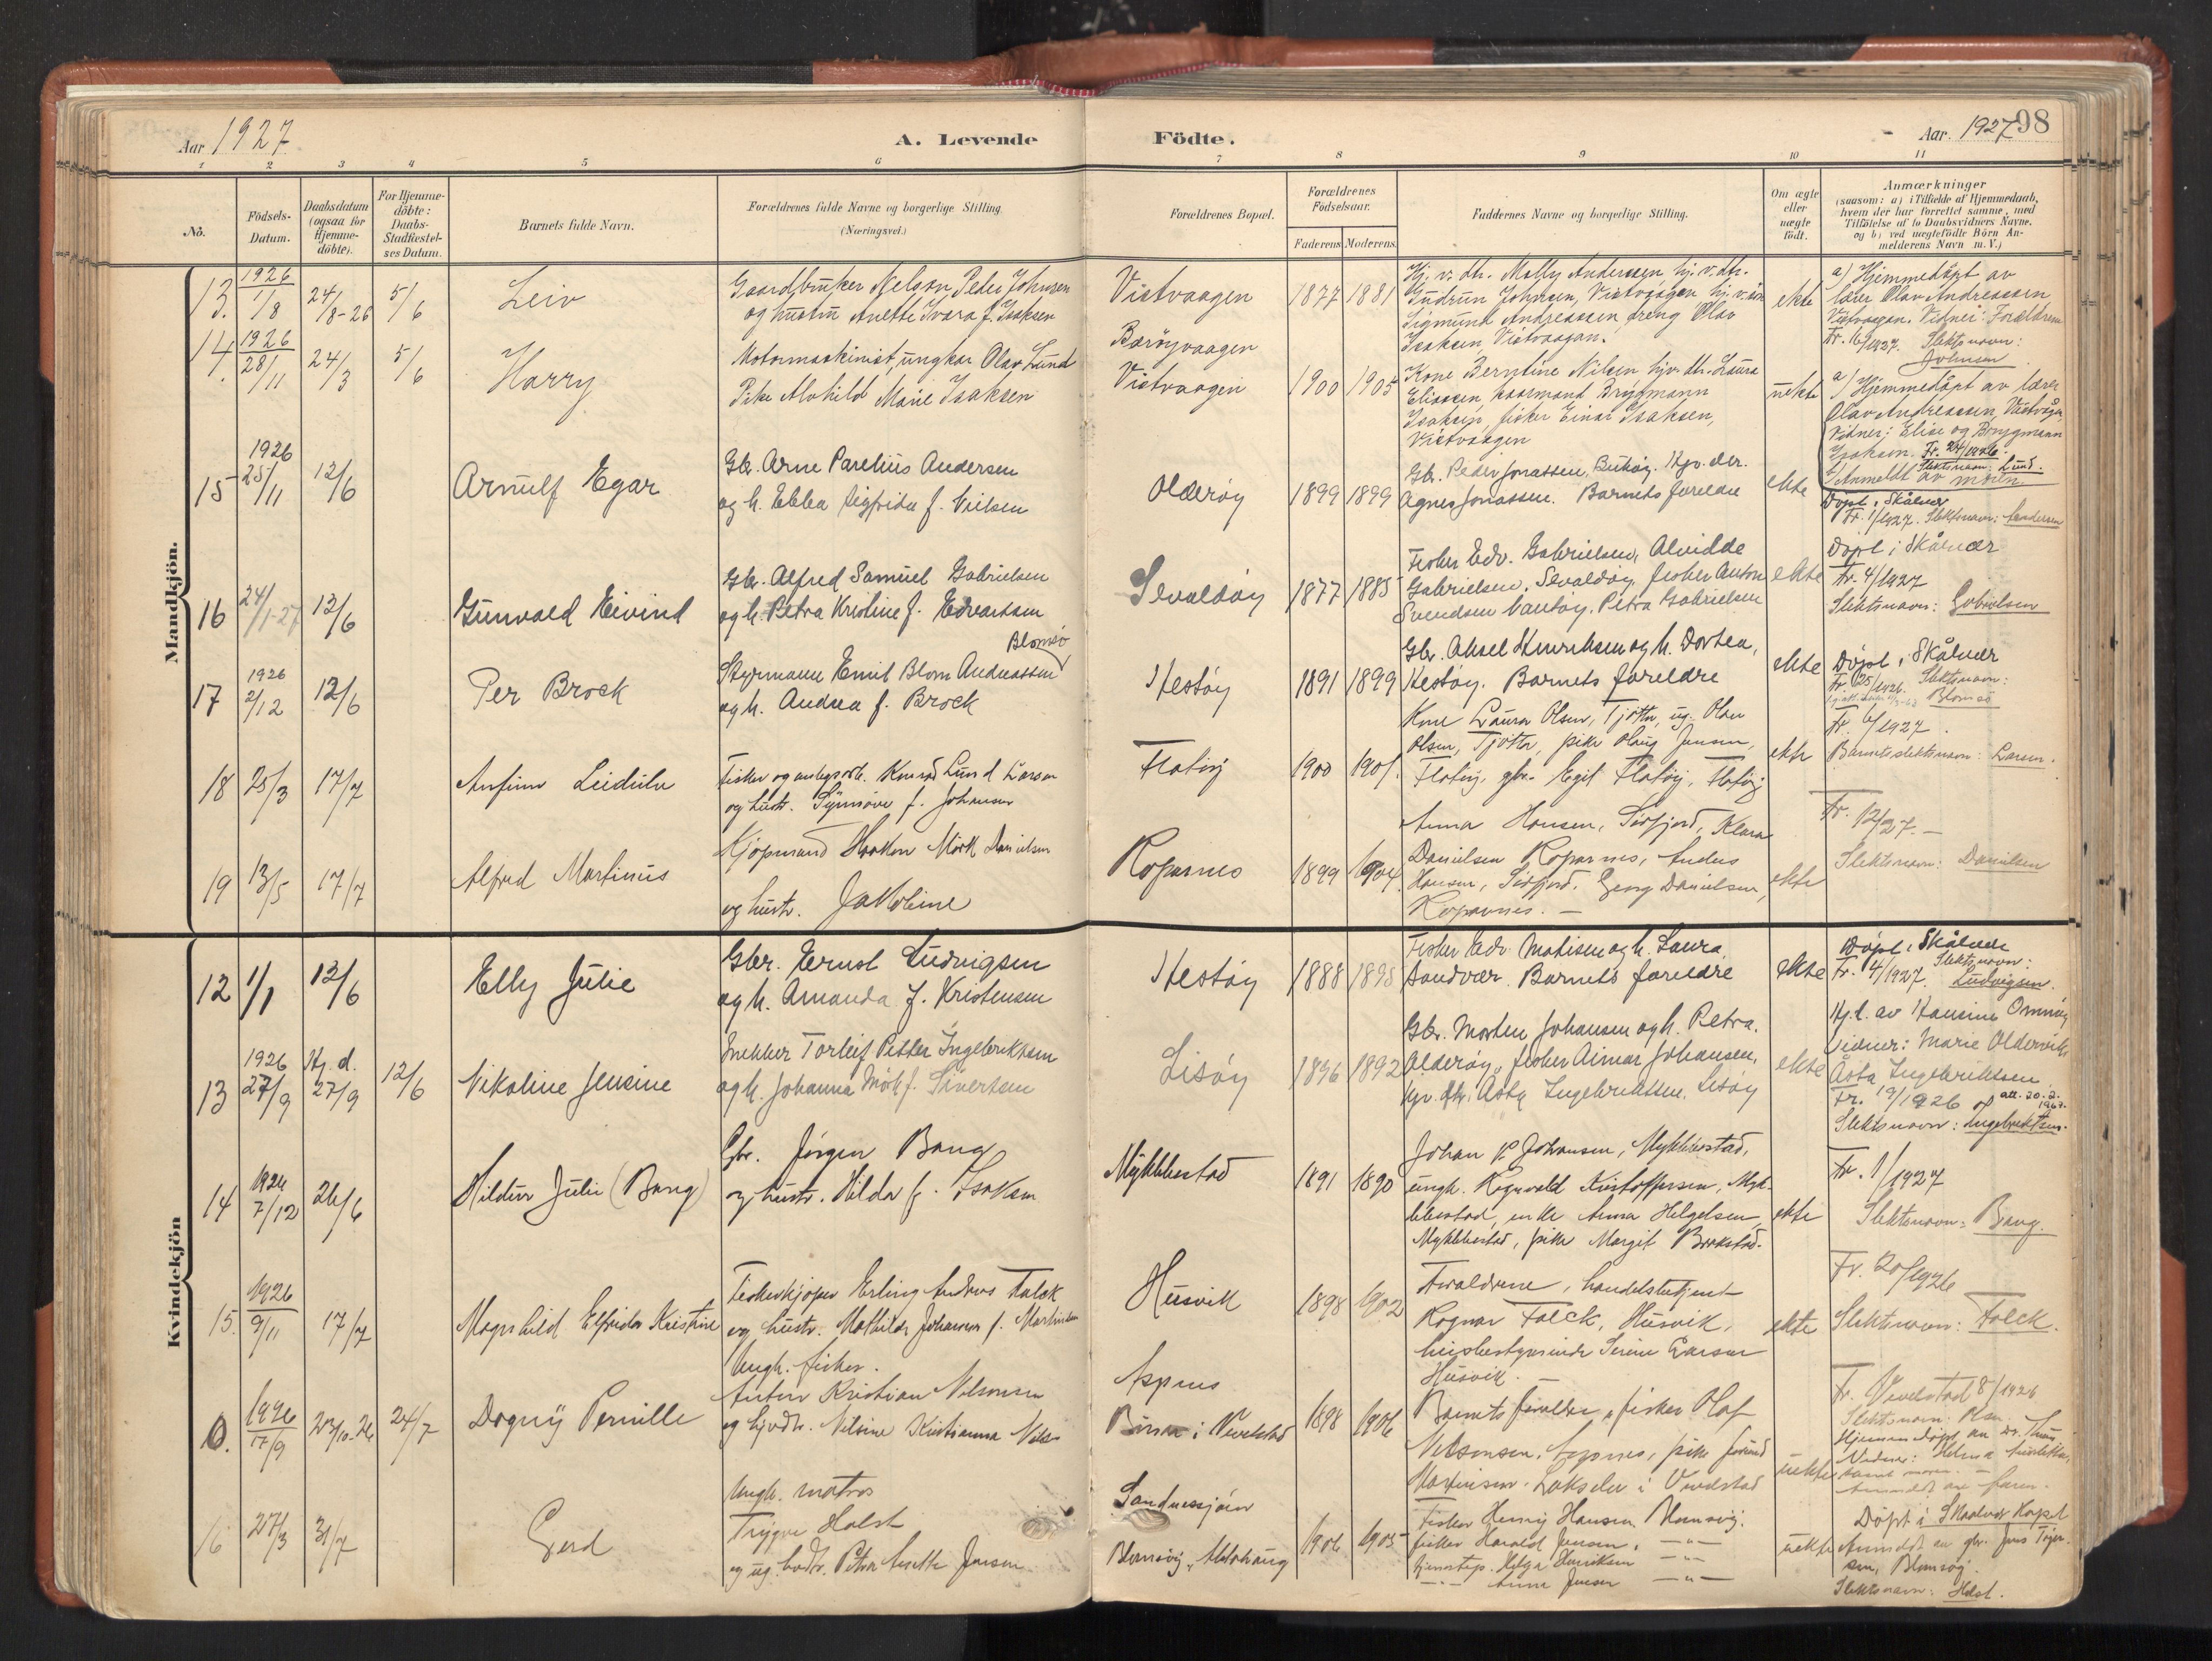 Aar 1927
A. Levende
Födte.
Aar. 1927
98
1 2 3 4 5 6 7 8 9 10 11
No.
Födsels-Datum.
Daabsdatum (ogsaa for Hjemme-döbte).
For Hjemme-döbte: Daabs-Stadfæstel-ses Datum.
Barnets fulde Navn.
Forældrenes fulde Navne og borgerlige Stilling
(Næringsvei.)
Forældrenes Bopæl.
Forældrenes Födselsaar.
Faderens Moderens
Faddernes Navne og borgerlige Stilling.
Om ægte eller uægte födt.
Anmærkninger
(saasom: a) i Tilfælde af Hjemmedaab,
hvem der har forrettet samme, med
Tilföielse af to Daabsvidners Navne.
og b) ved uægtefödte Börn An-
melderens Navn m. V.)
Mandkjön.
13. 1926 1/8 24/8-26 5/6 Leiv
Gaardbruker Nelson Peder Johnsen
og hustru Anette Ivara f. Isaksen
Vistvaagen 1877 1881
Hj. v. dtr. Molly Andersen hj. v. dtr.
Gudrun Johnsen, Vistvaagen hj. v. søn
Sigmund Andreassen dreng Olav
Isaksen Vistvaagen.
ekte
a) Hjemmedöpt av
lærer Olav Andreassen
Vistvaagen. Vidner: Forældrene
Fr. 16/1927. Slektsnavn:
Johnsen
14. 1926 28/11 24/3 5/6 Harry
Motormaskinist, ungkar Olav Lund
Pike Alvhild Marie Isaksen
Barøyvaagen
Vistvaagen 1900 1905
Kone Berntine Nilsen hjv. dtr. Laura
Eliassen, kaarmand Brygmann
Isaksen, fisker Einar Isaksen,
Vistvaagen
uekte
a) Hjemmedöpt av lærer
Olav Andreassen, Vistvåg
Vidner: Elise og Brygmann
Isaksen. Fr. 24/1926.
Slektsnavn: Lund.
b) Anmeldt av moren
15 1926 25/11 12/6 Arnulf Egar
Gbr. Arne Parelius Andersen
og h. Ebba Sigfrida f. Nielsen
Olderøy 1899 1899
Gbr. Peder Jonassen, Buköy. Hjv. dtr.
Agnes Jonassen. Barnets foreldre
ekte
Döpt i Skålvær
Fr. 1/1927. Slektsnavn: Andersen
16 24/1-27 12/6 Gunvald Eivind
Gbr. Alfred Samuel Gabrielsen
og h. Petra Kristine f. Edvartsen
Sevaldöy 1877 1885
Fisker Edv. Gabrielsen, Alvidde
Gabrielsen, Sevaldöy, fisker Anton
Svendsen, Petra Gabrielsen
ekte
Döpt i Skålvær
Fr. 4/1927
Slektsnavn: Gabrielsen
17 1926 2/12 12/6 Per Brock
Blomsö
Styrmann Emil Blom Andreassen
og h. Andrea f. Brock
Hestöy 1891 1899
Gbr. Aksel Henriksen og h. Dortea,
Hestöy. Barnets foreldre
ekte
Döpt i Skålvær
Fr. 25/1926. Slektsnavn:
Blomsö
18 25/3 17/7 Anfinn Leidulv
Fisker og anlegsarb. Konrad Lund Larsen
og hustr. Synnöve f. Johansen
Flatöy 1900 1901.
Kone Laura Olsen, Tjötta, ug. Olav
Olsen, Tjötta, pike Olaug Jensen,
Flatöy, gbr. Egil Flatöy, Flatöy
ekte
Fr. 6/1927.
Barnets slektsnavn: Larsen.
19 13/5 17/7 Alfred Martinus
Kjöpmand Haakon Mörk Danielsen
og hustr. Jakobine
Kopernes 1899 1904.
Anna Hansen, Sörfjord, Klara
Danielsen Kopernes, Anders
Hansen, Sörfjord, Georg Danielsen,
Kopernes.
ekte
Fr. 12/27.
Slektsnavn: Danielsen
Kvindekjön
12 1/1 12/6 Elly Julie
Gbr. Ernst Ludvigsen
og h. Amanda f. Kristensen
Hestöy 1888 1898
Fisker Edv. Matisen og h. Laura,
Sandvær. Barnets foreldre
ekte
Döpt i Skålvær
Fr. 4/1927. Slektsnavn:
Ludvigsen.
13 1926 27/9 Hj. d. 27/9 12/6 Nikoline Jensine
Snekker Torleif Petter Ingebriktsen
og h. Johanna Mörk f. Sivertsen
Lisöy 1896 1892
Gbr. Morten Johansen og h. Petra.
Olderöy, fisker Aimar Johansen,
hjv. dtr. Åsta Ingebriktsen. Lisöy
ekte
Hj.d. av Hansine Omnöy
Vidner: Marie Oldervik,
Åsta Ingebriktsen
Fr. 19/1926 att. 20.2. 1967.
Slektsnavn: Ingebriktsen.
14 1926 7/12 26/6 Hildur Julie (Bang)
Gbr. Jörgen Bang
og hustr. Hilda f. Isaksen
Myklebostad 1891 1890
Johan P Johansen, Myklebostad,
ungk. Ragnvald Kristoffersen, Myk-
lebostad, enke Anna Helgesen,
Myklebostad, pike Margit Brokstad.
ekte
Fr. 1/1927
Slektsnavn: Bang.
15. 1926 9/11 17/7 Magnhild Elfrida Kristine
Fiskerkjöper Erling Andreas Falck
og hustr. Mathilde Johanna f. Martinsen
Husvik 1898 1902
Forældrene, handelsbetjent
Ragnar Falck, Husvik,
husbestyrerinde Serine Larsen
Husvik.
ekte
Fr. 20/1926
Slektsnavn: Falck.
0. 1926 17/9 23/10-26 24/7 Dagny Pernille
Ungk. fisker.
Anton Kristian Nilsonsen
og hjvdtr. Nilsine Kristianna Nils
Aspnes
i Vevelstad 1898 1906
Barnets foreldre, fisker Olaf
Nilsonsen, Aspnes, pike
Martinsen. Lakselv i Vevelstad
uekte
Fr. Vevelstad 8/1926
Slektsnavn:
Hjemmedöpt av
Vidner: Helma
samt moren.
Anmeldt av faren.
16 27/3 31/7 Gerd
Ungk. matros
Trygve Holst
og ug. Petra Anette Jensen
Sandnessjöen
Blomsöy, Alstahaug 1906 1905
Fisker Henry Hansen, Blomsöy.
fisker Harald Jensen, — " —
tjenestep. Helga Henriksen — " —
— " — Anna Jensen — " —
uekte
Döpt i Skaalvær Kapel
Anmeldt av gbr. Jens
sen, Blomsöy.
Slektsnavn: Holst.